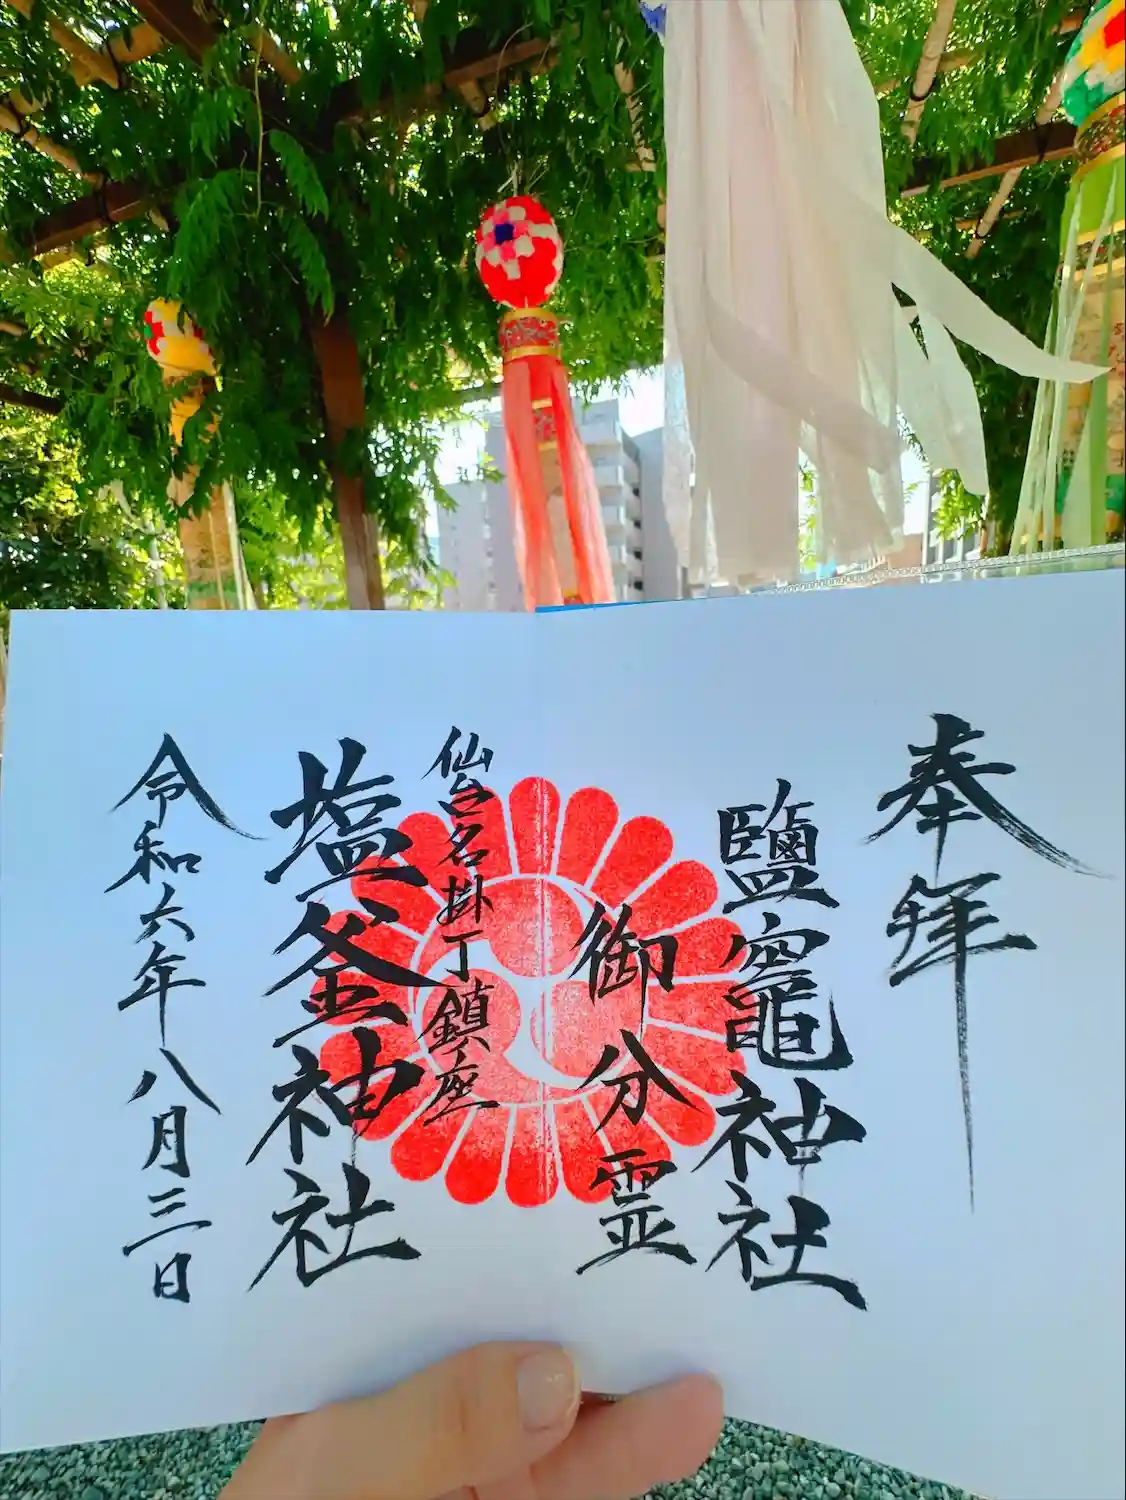 奉拜
鹽竈神社
御分霊
仙台名掛丁鎮座
塩釜神社
令和六年八月三日